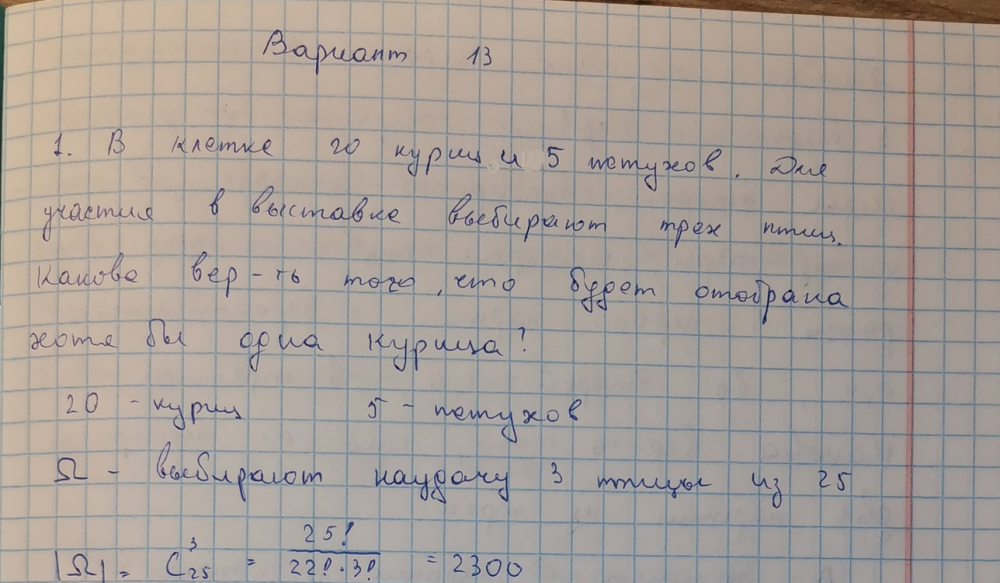 Вариант 13
1. В клетке 20 куриц и 5 петухов. Для
участия в выставке выбирают трех птиц.
Какова вер-ть того, что будет отобрана
хотя бы одна курица?
20 - куриц 5 - петухов
Ω - выбирают наудачу 3 птицы из 25
|Ω| = C₂₅³ = 25! / 22! · 3! = 2300